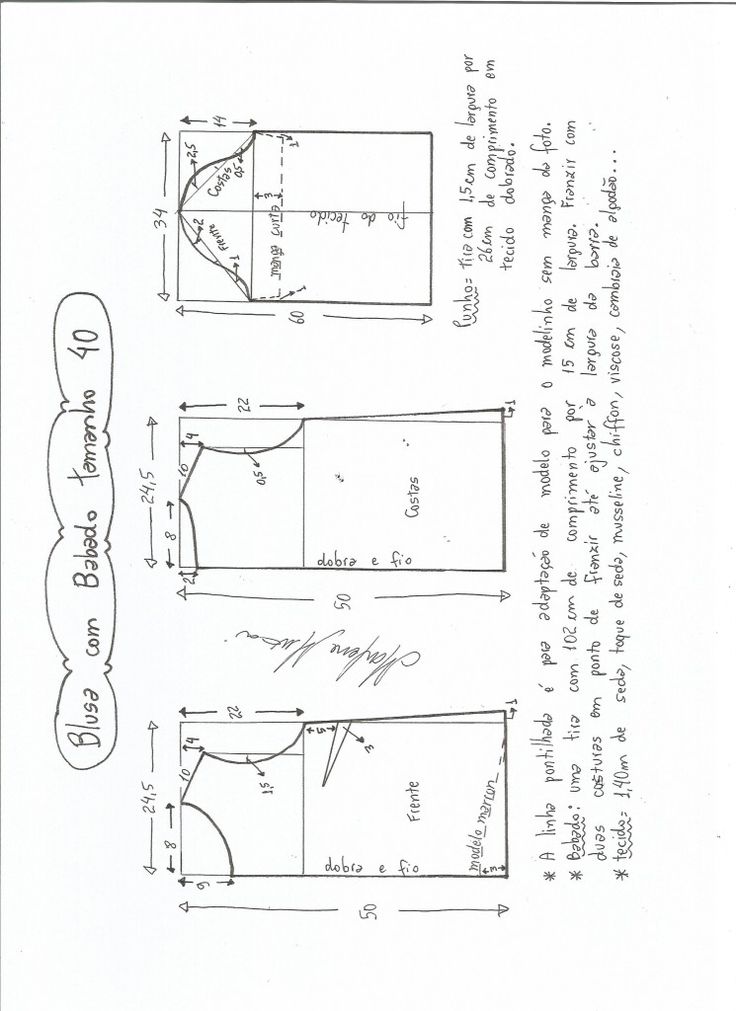 Blusa com Babado tamanho 40
24,5
8
10
4
22
9
1,5
5
3
50
dobra e fio
Frente
modelo marron
3
1
24,5
8
10
4
22
2
0,5
50
dobra e fio
Costas
1
34
14
2
2,5
Frente
Costas
1
0,5
manga curta
3
1
1
60
fio do tecido
Punho= tira com 1,5cm de largura por
26cm de comprimento em
tecido dobrado.
* A linha pontilhada é para adaptação de modelo para o modelinho sem manga da foto.
* Babado: uma tira com 102cm de comprimento por 15 cm de largura. Franzir com
duas costuras em ponto de franzir até ajustar a largura da barra.
* tecido= 1,40m de seda, toque de seda, musseline, chiffon, viscose, cambraia de algodão...